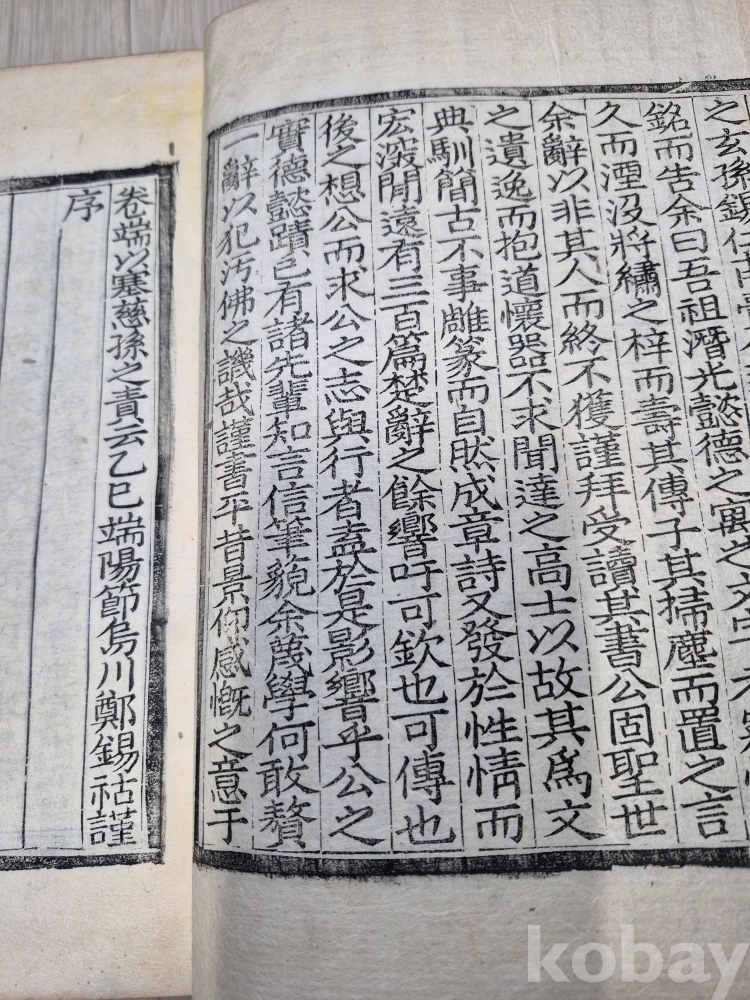 之玄孫錫
銘而告余曰吾祖潛光懿德之實之文字
久而湮沒將繡之梓而壽其傳子其掃塵而置之言
余辭以非其人而終不獲謹拜受讀其書公固聖世
之遺逸而抱道懷器不求聞達之高士以故其爲文
典馴簡古不事雕篆而自然成章詩又發於性情而
宏深閒遠有三百篇楚辭之餘響吁可欽也可傳也
後之想公而求公之志與行者盍於是影響乎公之
實德懿蹟已有諸先輩知言信筆貌余蔑學何敢贅
一辭以犯汚佛之譏哉謹書平昔景仰感慨之意于
卷端以塞慈孫之責云乙巳端陽節烏川鄭錫祜謹
序
kobay